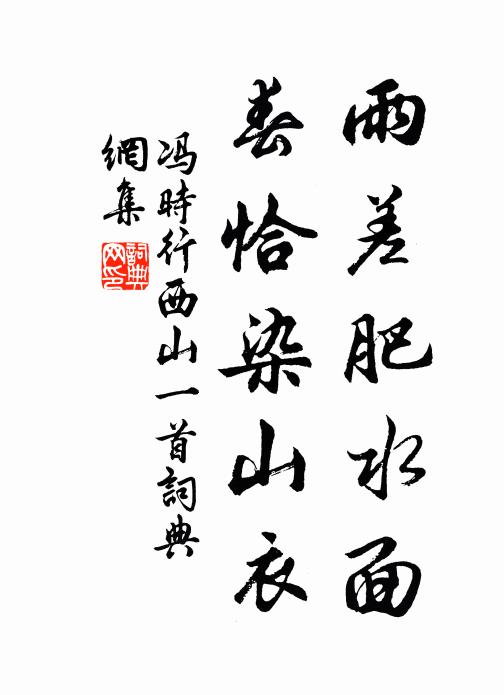 雨差肥水面
春恰染山衣
冯時行西山一首詞典
網集
詞典
网印